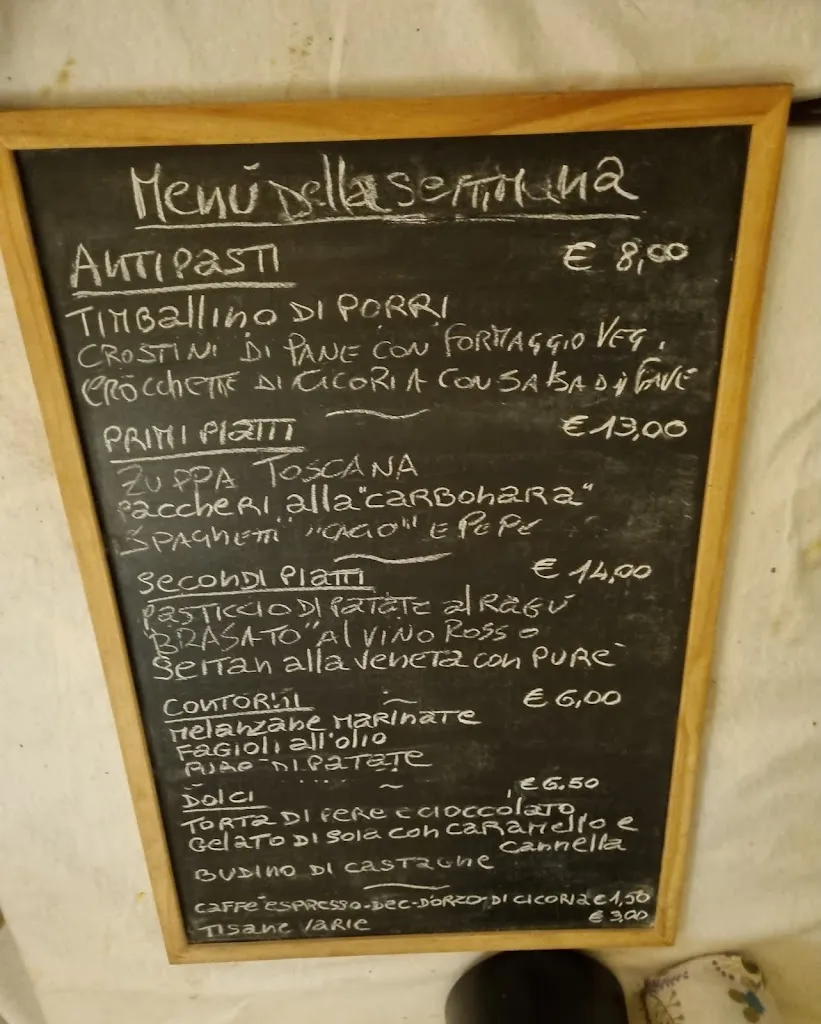 Menù Della settimana
ANTIPASTI € 8,00
TIMBallino DI PORRI
CROSTINI DI PANE CON FORMAGGIO VEG.
CROCCHETTE DI CICORIA CON SALSA DI FAVE
PRIMI PIATTI € 13,00
ZUPPA TOSCANA
Paccheri alla "CARBONARA"
SPAGHETTI "CACIO" E PEPE
SECONDI PIATTI € 14,00
PASTICCIO DI PATATE al RAGÙ
"BRASATO" Al VINO ROSSO
Seitan alla veneta con PURÈ
CONTORNI € 6,00
Melanzane MARINATE
FAGIOLI all'olio
PURÈ DI PATATE
DOLCI € 6.50
TORTA DI PERE E CIOCCOLATO
Gelato DI SOIA con caramello e
cannella
BUDINO DI CASTAGNE
CAFFÈ ESPRESSO-DEC-D'ORZO-DI CICORIA € 1,50
TISANE VARIE € 3,00